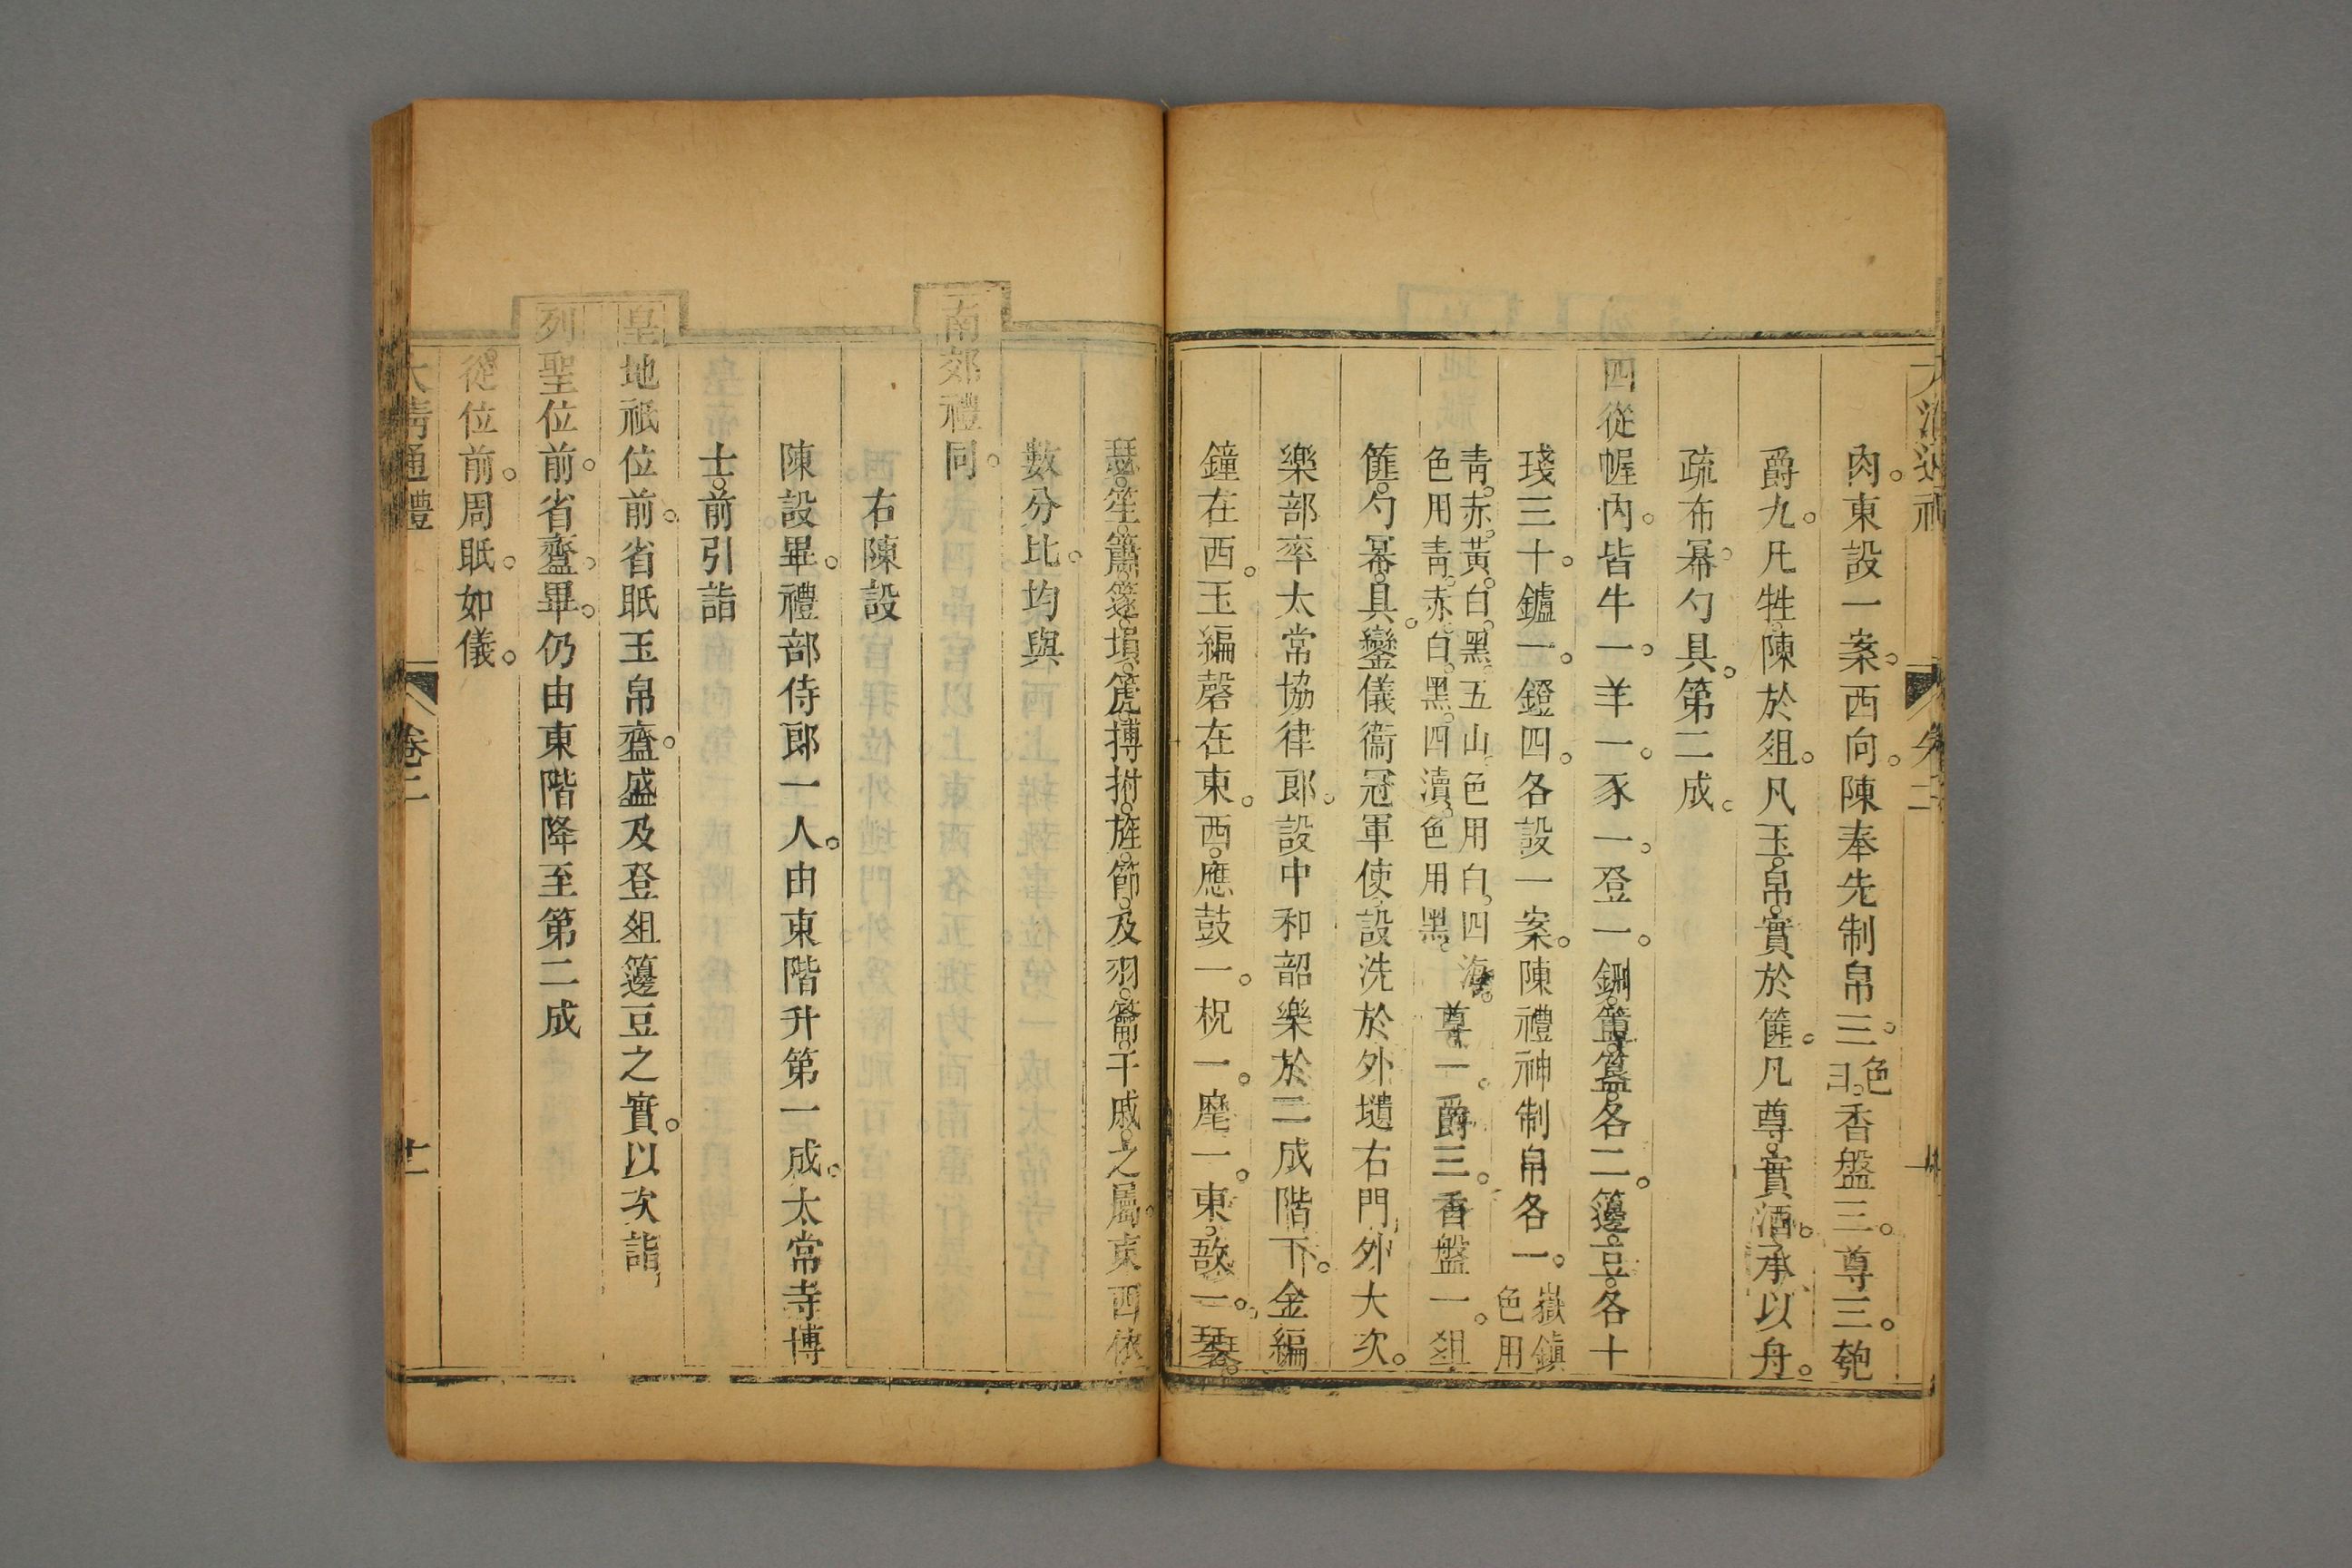 肉。東設一案。西向。陳奉先制帛三。色白。香盤三。尊三。匏
爵九。凡牲陳於俎。凡玉。帛。實於篚。凡尊。實酒。承以舟。
疏布冪。勺具。第二成。
四從幄內。皆牛一。羊一。豕一。登一。鉶。簠。簋。各二。籩。豆。各十。
琖三十。鑪一。鐙四。各設一案。陳禮神制帛各一。嶽鎮色用
青。赤。黃。白。黑。五山色用白。四海。色用青。赤。白。黑。四瀆。色用黑。尊一。爵三。香盤一。俎
篚。勺冪。具。鑾儀衞冠軍使。設洗於外壝右門外大次。
樂部率太常協律郎。設中和韶樂於二成階下。金編
鐘在西。玉編磬在東。西。應鼓一。柷一。麾一。東。敔一。琴。
瑟。笙。簫。篴。塤。篪。搏拊。旌。節。及羽。籥。干戚。之屬。東西依
數分比。均與
南郊禮同。
右陳設
陳設畢。禮部侍郎一人。由東階升第一成。太常寺博
士。前引詣
皇地祇位前。省眂玉帛齍。盛及登俎籩豆之實。以次詣
列聖位前。省齍。畢。仍由東階降至第二成
從位前。周眂。如儀。
大清通禮 卷二 十二